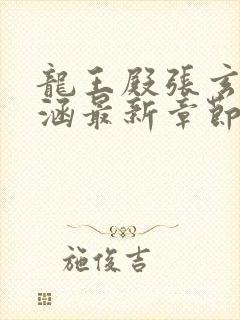 龍王殿張玄
涵最新章節
施俊吉